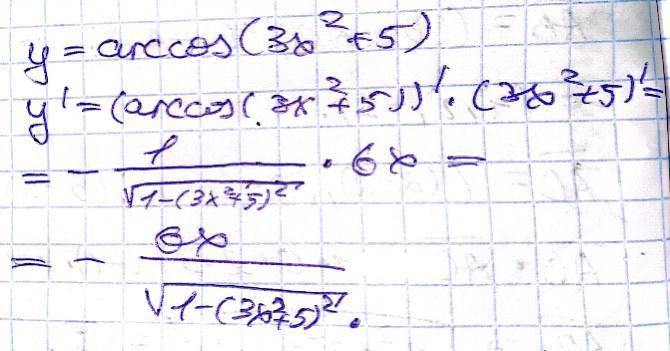 y = arccos(3x²+5)
y' = (arccos(3x²+5))' · (3x²+5)' =
= - 1/√(1-(3x²+5)²) · 6x =
= - 6x/√(1-(3x²+5)²).